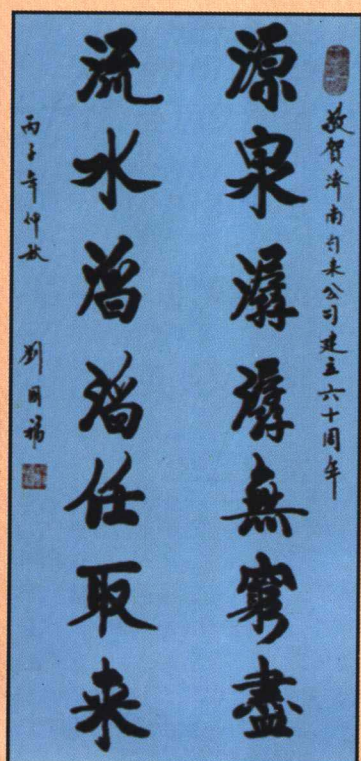 敬賀濟南自来公司建立六十周年
源泉潺潺無窮盡
流水滔滔任取来
丙子年仲秋 劉国福